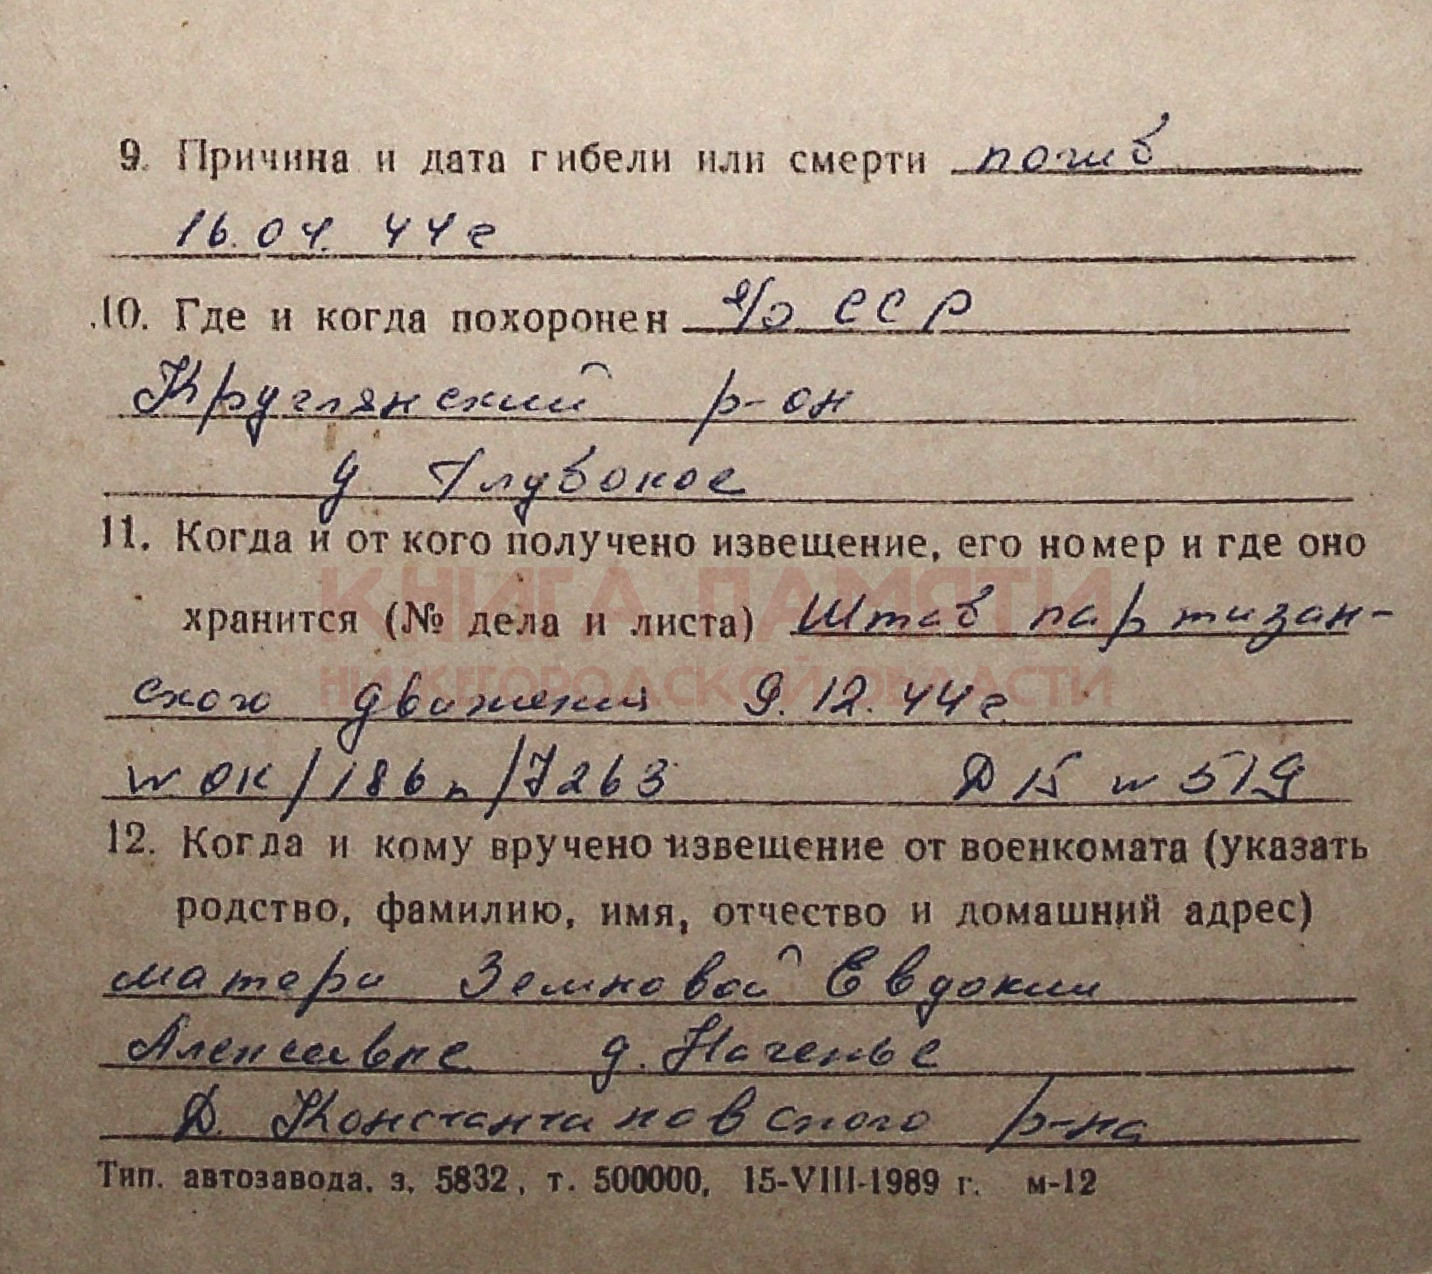 9. Причина и дата гибели или смерти погиб
16.04. 44 г
10. Где и когда похоронен ССР
Круглянский р-он
д Глубокое
11. Когда и от кого получено извещение, его номер и где оно
КНИГА ПАМЯТИ
хранится (№ дела и листа) Штаб партизан-
НИЖЕГОРОДСКОЙ ОБЛАСТИ
ского движения 9.12.44 г
ОК/186 /7263 Д 15 519
12. Когда и кому вручено извещение от военкомата (указать
родство, фамилию, имя, отчество и домашний адрес)
матери Земновой Евдокии
д.
Д. Константиновского р-на
Тип. автозавода. з. 5832, т. 500000, 15-VIII-1989 г. м-12